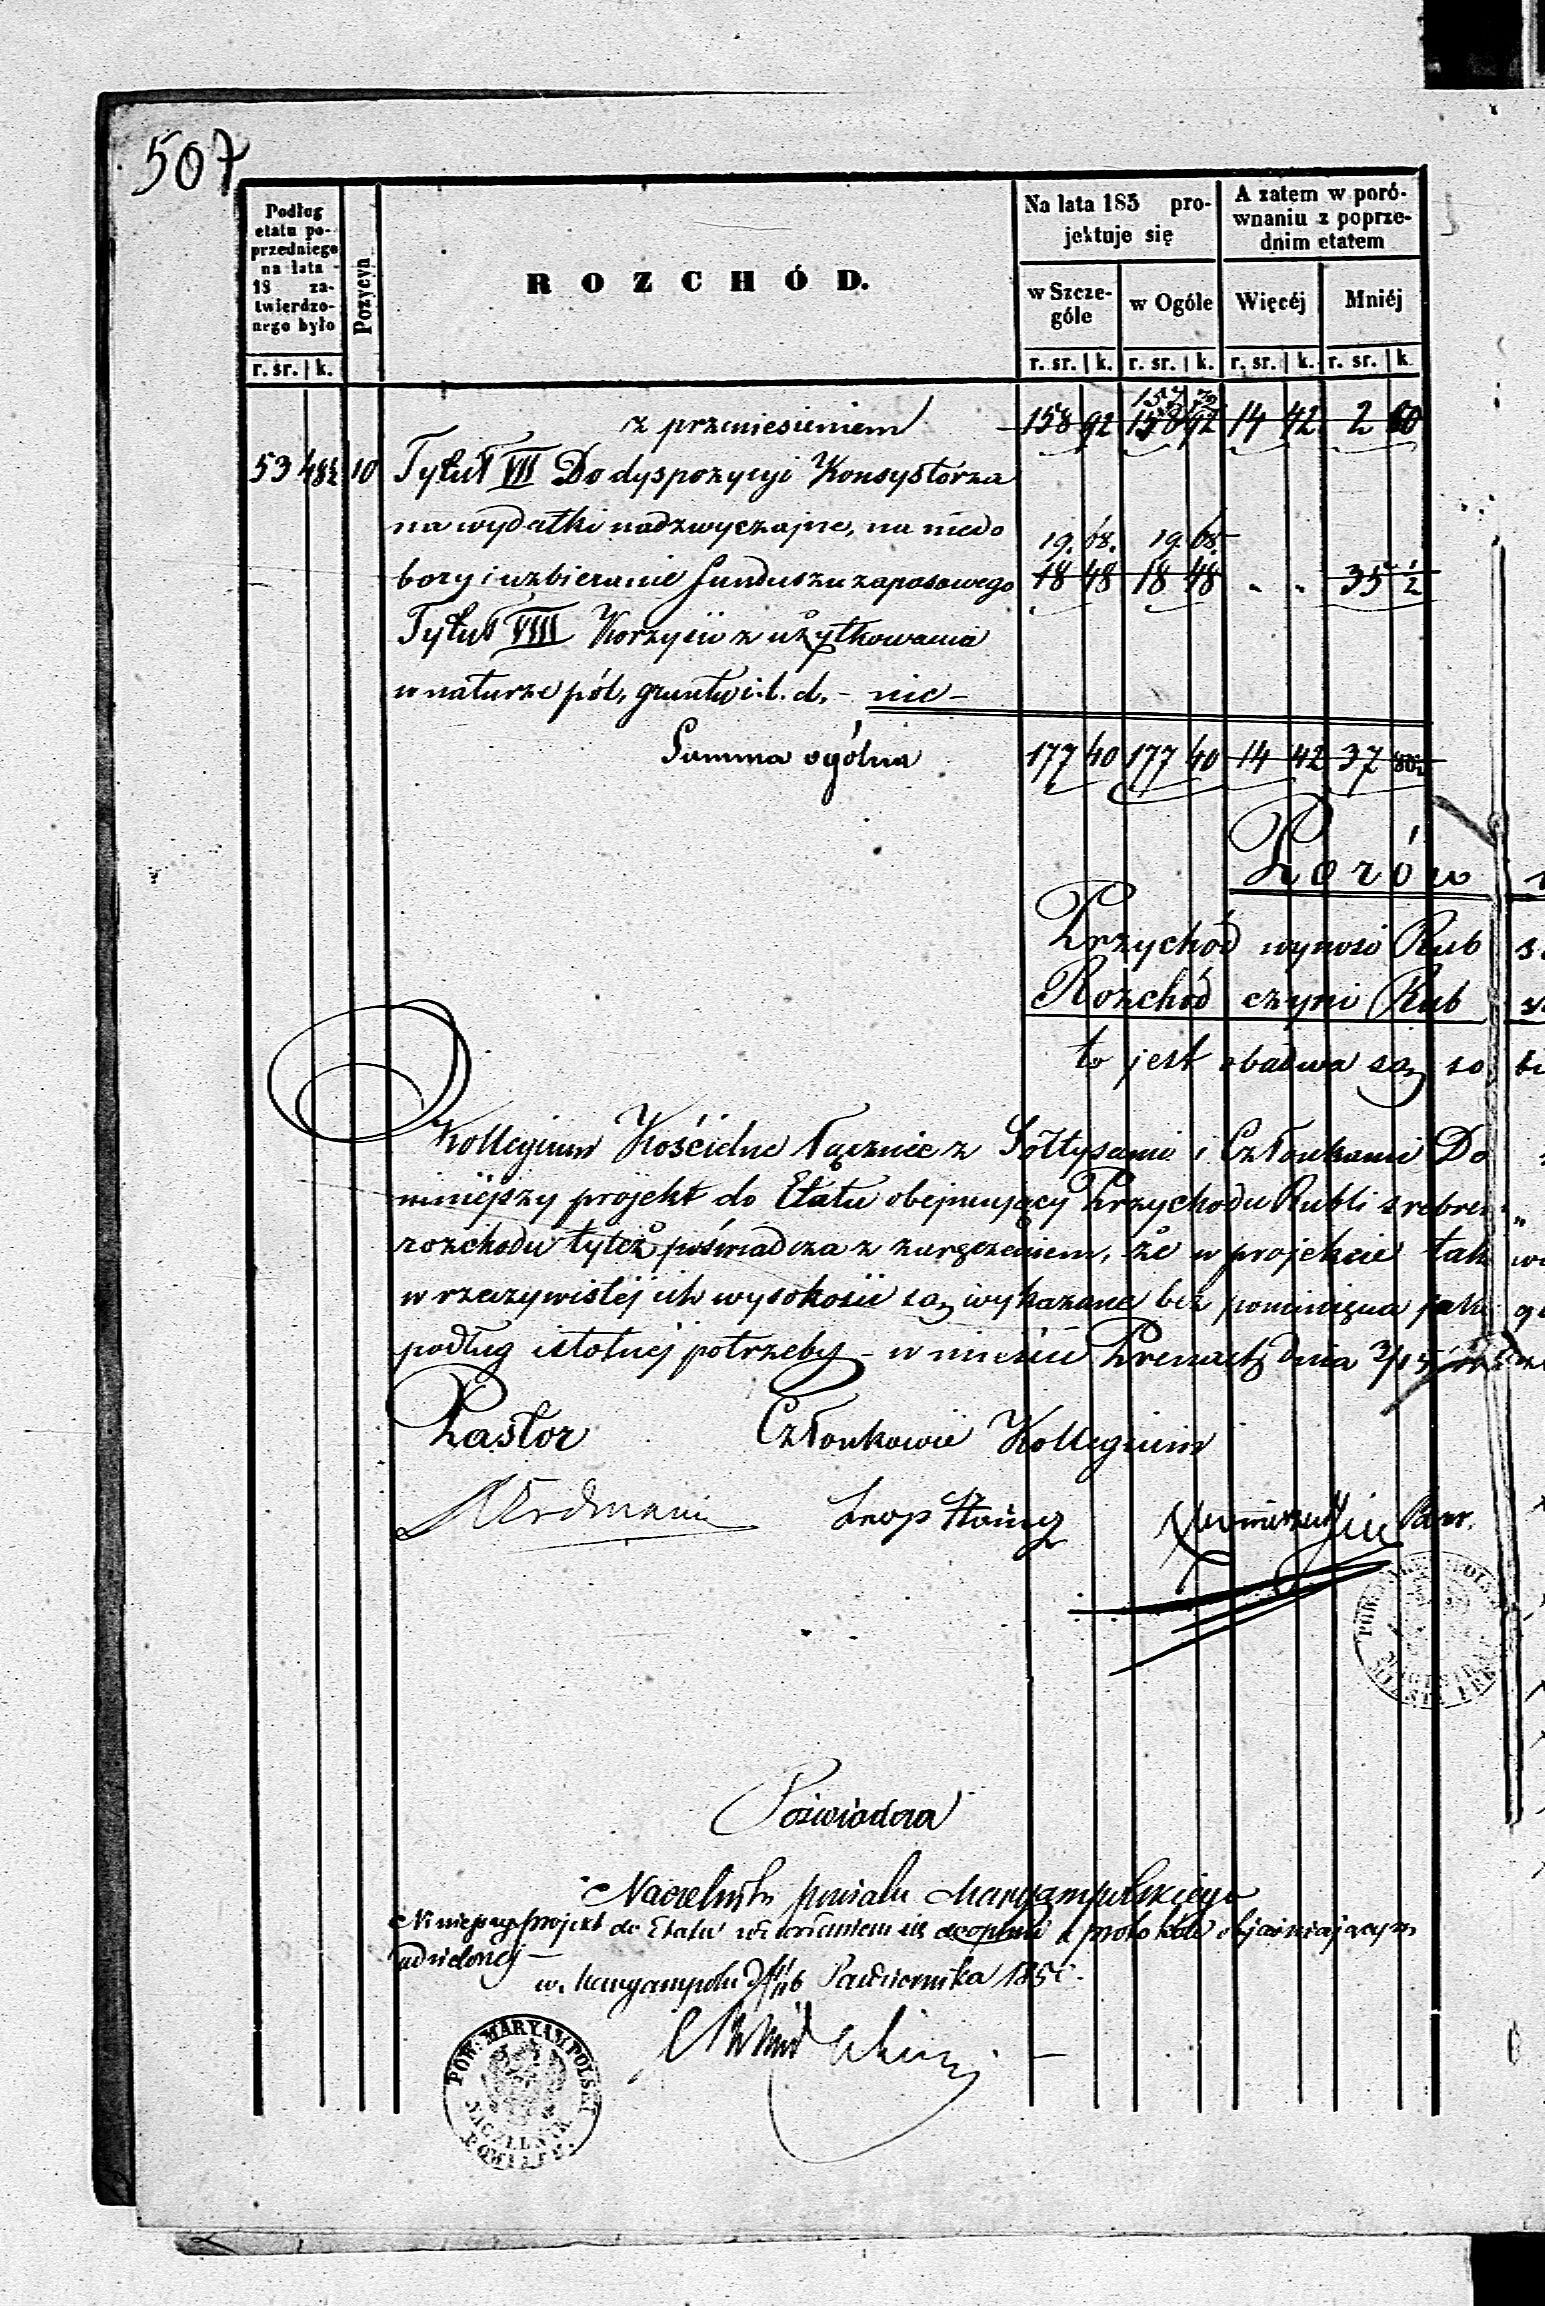 507
Podług etatu poprzedniego na lata 18 zatwierdzonego było
Pozycya
ROZCHÓD.
Na lata 185 projektuje się
A zatem w porównaniu z poprzednim etatem
w Szczególe
w Ogóle
Więcéj
Mniéj
r. sr. k. r. sr. k. r. sr. k. r. sr. k. r. sr. k.
157 72
z przeniesieniem 158 92 158 92 14 42 2 60
53 48½ 10 Tytuł VII Do dyspozycyi Konsystorza
na wydatki nadzwyczajne, na niedo 19. 68. 19. 68.
bory i uzbieranie funduszu zapasowego 18 48 18 48 " " 35 ½
Tytuł VIII Korzyści z użytkowania
w naturze pól, gruntu i.t.d. - nic -
Summa ogólna 177 40 177 40 14 42 37
Porów
Przychód wynosi Rub
Rozchód czyni Rub
to jest obadwa są so
Kollegium Kościelne łącznie z Sołtysami i Członkami Do
niniejszy projekt do Etatu obejmujący Przychodu Rubli srebrem
rozchodu tyleż poświadcza z zaręczeniem, że w projekcie tak
w rzeczywistéj ich wysokości są wykazane bez pominięcia jak
podług istotnéj potrzeby - w mieście Prenach dnia 3/15
Pastor Członkowie Kollegium
Erdmann Leop
Poświadcza
Naczelnik powiatu Maryampolskiego
Niniejszy projekt do Etatu protokóle objaśniającym
udzieloney -
w Maryampolu d 4/16 Październik 185
POW: MARYAMPOLSKI
NACZELNIK
POWIATU